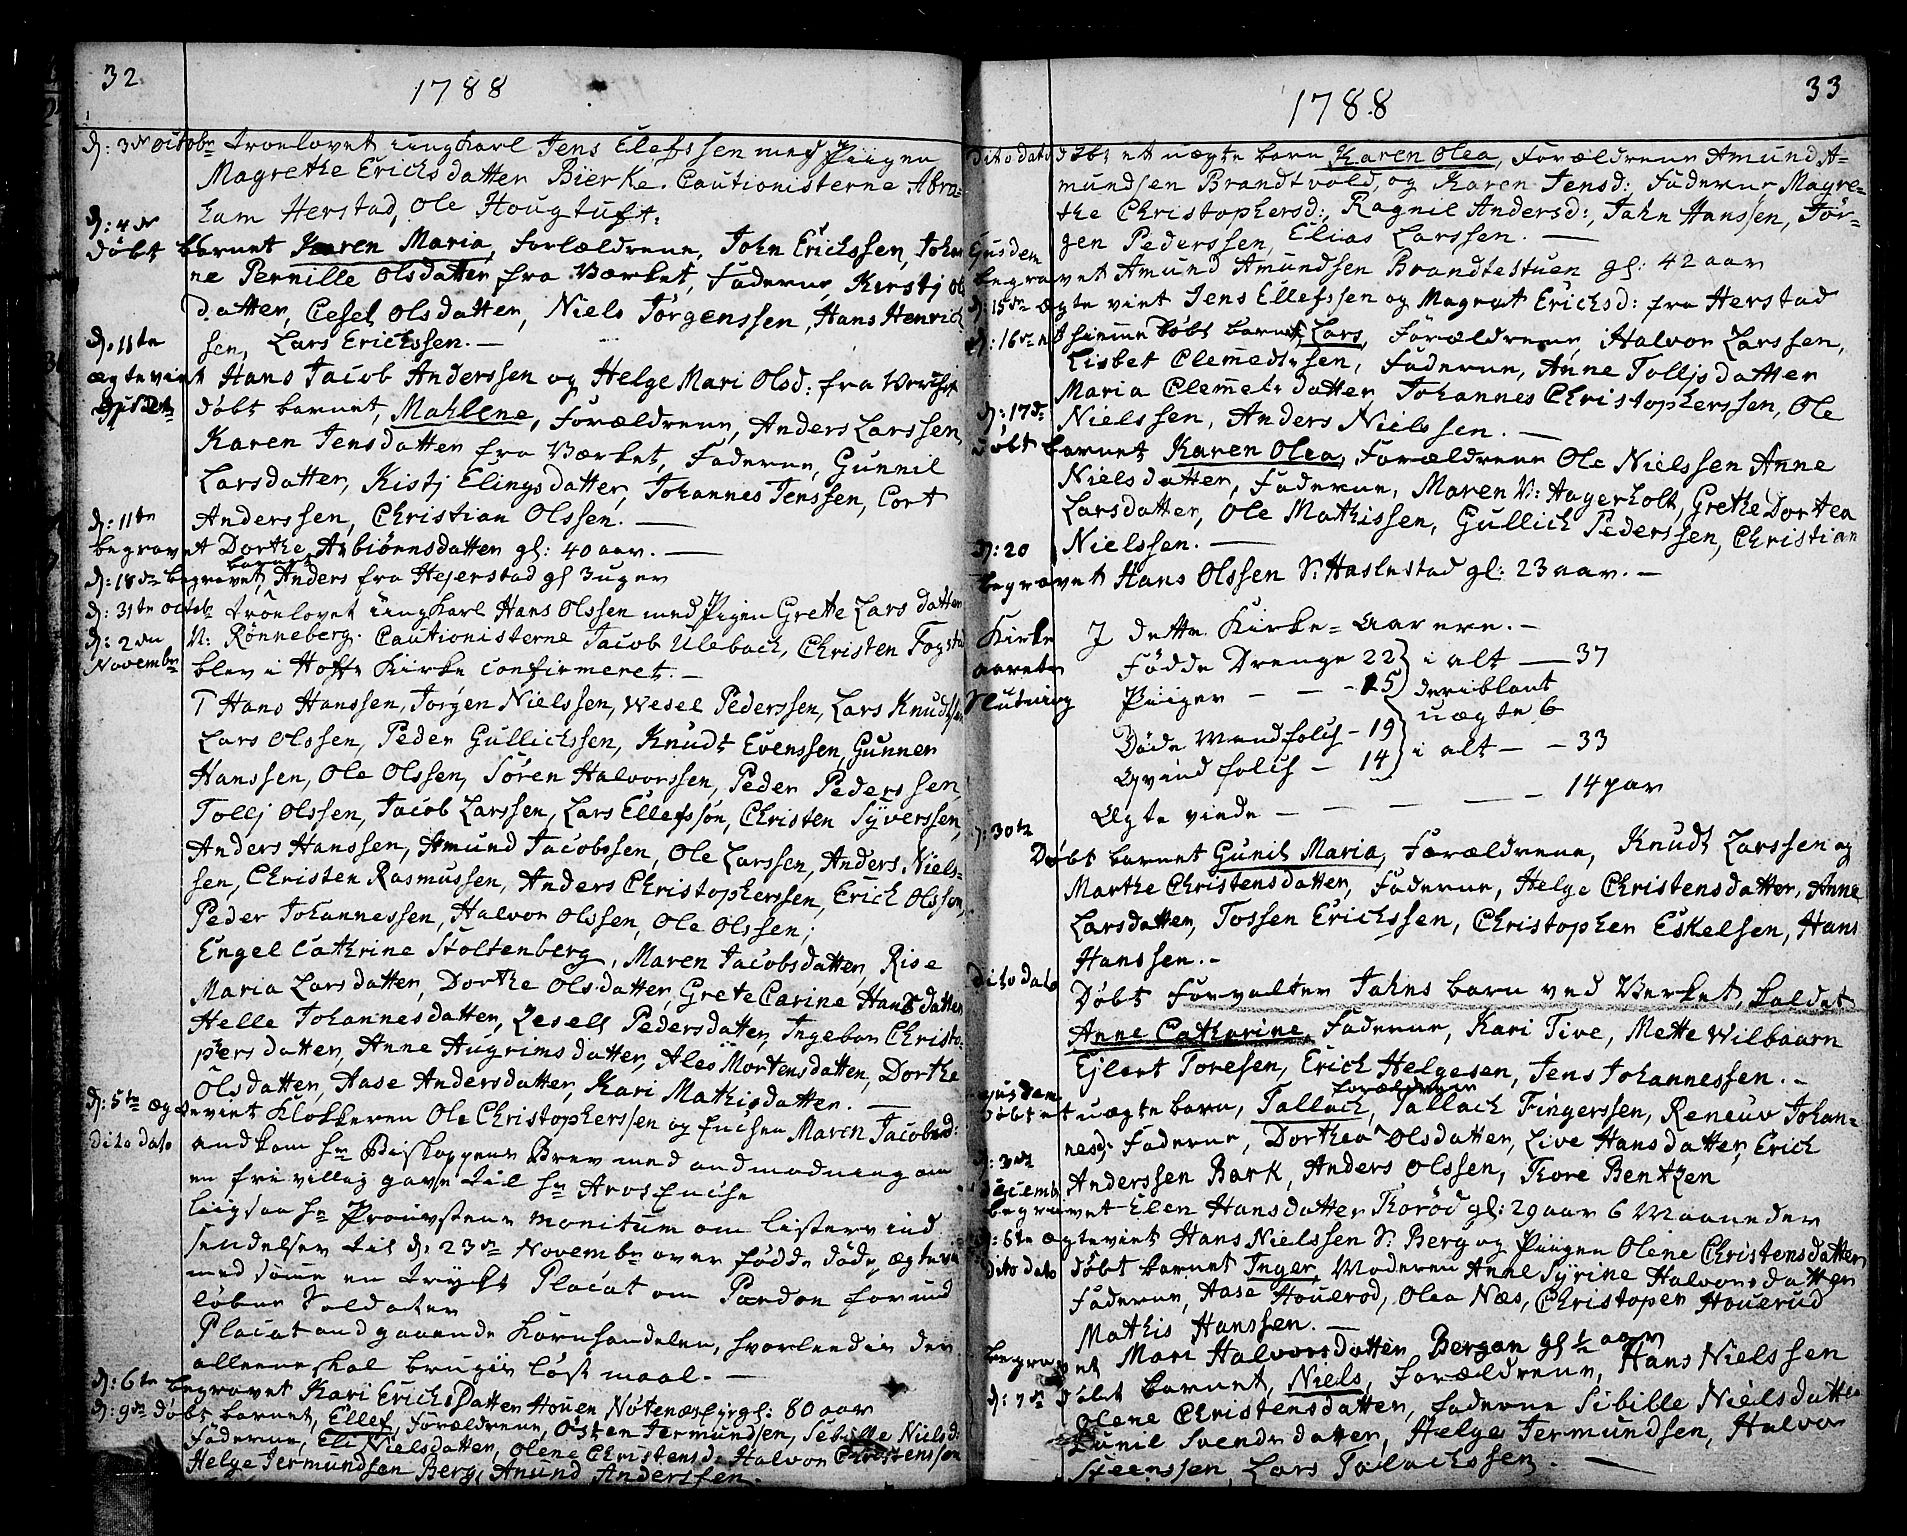 32
1788
d: 3de octobr troelovet ungkarl Jens Elefssen med Piigen
Magrethe Ericksdatter Bierke. Cautionisterne Abra-
ham Herstad, Ole Hougtuft.
d: 4de
döbt barnet Karen Maria, forældrene, John Erickssen, Johan
ne Pernille Olsdatter fra Værket, Faderne, Kirstj Ols
datter, Cesel Olsdatter, Niels Jörgenssen, Hans Henrich
sen, Lars Erickssen. —
d: 11te
ægteviet Hans Jacob Anderssen og Helge Mari Olsd: fra Verchet
döbt barnet, Mahlene, Forældrene, Anders Larssen,
Karen Jensdatter fra Værket, Faderne, Gunnil
Larsdatter, Kistj Elingsdatter, Johannes Jenssen, Cort
Anderssen, Christian Olssen. —
d: 11te
begravet Dorthe Asbiörnsdatter gl: 40 aar. —
d: 18de begravet barnet Anders fra Hejerstad gl 3 uger
d: 31te octob troelovet ungkarl Hans Olssen med Pigen Grete Larsdatter
d: 2den N: Rönneberg. Cautionisterne Jacob Ulebach, Christen Fogsta
Novembr blev i Hoffs Kirke confirmeret. —
T Hans Hanssen, Jörgen Nielssen, Wesel Pederssen, Lars Knudssen
Lars Olssen, Peder Gullichssen, Knudt Evenssen, Gunner
Hanssen, Ole Olssen, Sören Halvorssen, Peder Pederssen,
Tollj Olssen, Jacob Larssen, Lars Ellefssön, Christen Syverssen,
Anders Hanssen, Amund Jacobssen, Ole Larssen, Anders Niels-
sen, Christen Rasmussen, Anders Christopherssen, Erich Olssön,
Peder Johannessen, Halvor Olssen, Ole Olssen;
Engel Cathrine Stoltenberg, Maren Jacobsdatter, Rise
Maria Larsdatter, Dorthe Olsdatter, Grete Carine Hansdatter
Helle Johannesdatter, Zesell Pedersdatter, Ingebor Christo-
phersdatter, Anne Augrimsdatter, Aleo Mortensdatter, Dorthe
Olsdatter, Aase Andersdatter, Kari Mathisdatter. —
d: 5te ægteviet Klokkeren Ole Christopherssen og Maren Jacobsd:
dito dato ankom hr Biskoppens Brev med anmodning om
en frivillig gave til hr
ligsaa hr Provstens monitum om listers ind
sendelser til d: 23de Novembr over födde, döde, ægtevi
med samme en trykt Placat om Pardon for und
löbne Soldater
Placat angaaende Kornhandelen, hvorledis den
alleene skal brugis löst maal. —
d: 6te begravet Kari Ericksdatter Houen gl: 80 aar
d: 9de döbt barnet, Ellef, Forældrene, Östen Jermundsen, Sebille Nielsd:
Faderne, Eli Nielsdatter, Olene Christensd: Halvor Christenssön
Helge Jermundsen Berg, Amund Anderssen.
33
1788
dito dato döbt et uægte barn Karen Olea, Forældrene Amund A-
mundsen Brandtvold, og Karen Jensd: Faderne Magre-
the Christophersd:, Ragnil Andersd:, Jahn Hanssen, Jör-
gen Pederssen, Elias Larssen. —
Ejusdem
begravet Amund Amundsen Brandtestuen gl: 42 aar
d: 15de ægteviet Jens Ellefssen og Magret Ericksd: fra Herstad
d: 16de hiemme döbt barnet Lars, Forældrene, Halvor Larssen,
Lisbet Clemedtssen, Faderne, Anne Tolljsdatter
Maria Clemetsdatter, Johannes Christopherssen, Ole
d: 17de Nielssen, Anders Nielssen. —
döbt barnet Karen Olea, Forældrene Ole Nielssen Anne
Nielsdatter, Faderne, Maren N: Aagerholt, Grethe Dortea
Larsdatter, Ole Mathissen, Gullich Pederssen, Christian
d: 20 Nielssen. —
begravet Hans Olssen S: Haslestad gl: 23 aar. —
Kirke J dette Kirke-Aar ere. —
aarets Födde Drenge 22 } i alt — 37
Slutning Piiger — — 15 } deriblant
uægte 6
Döde Mandfolch - 19 } i alt — — 33
Qvindfolch — 14
Ægteviede — — — — 14 par
d: 30te
Döbt barnet Gunil Maria, Forældrene, Knudt Larssen og
Marthe Christensdatter, Faderne, Helge Christensdatter, Anne
Larsdatter, Tossen Erickssen, Christopher Eskelsen, Hans
Hanssen. —
dito dato
Döbt Forvalter Jahns barn ved Verket, kaldet
Anne Catharine, Faderne, Kari Tive, Mette Wilbaarn
Ejlert Toresen, Erich Helgesen, Jens Johannessen. —
Ejusdem
Döbt et uægte barn, Tallach, forældrene Tallach Fingerssen, Reneuv Johan-
nesd: Faderne, Dorthea Olsdatter, Live Hansdatter, Erich
d: 3de Anderssen Bark, Anders Olssen, Thore Bentzen
Decemb
begravet Elen Hansdatter Koröd gl: 29 aar 6 Maaneder
d: 6te ægteviet Hans Nielssen S: Berg og Piigen Olene Christensdatter
dito dato döbt barnet Inger, Moderen Anne Syrine Halvorsdatter
Faderne, Aase Houerod, Olea Næs, Christopen Houerud
Mathis Hanssen. —
begravet Mari Halvorsdatter Bergan gl ½ aar
d: 7de döbt barnet, Niels, Forældrene, Hans Nielssen
Olene Christensdatter, faderne Sibille Nielsdatter
Gunil Svendsdatter, Helge Jermundsen, Halvor
Steenssen, Lars Talachssen. —